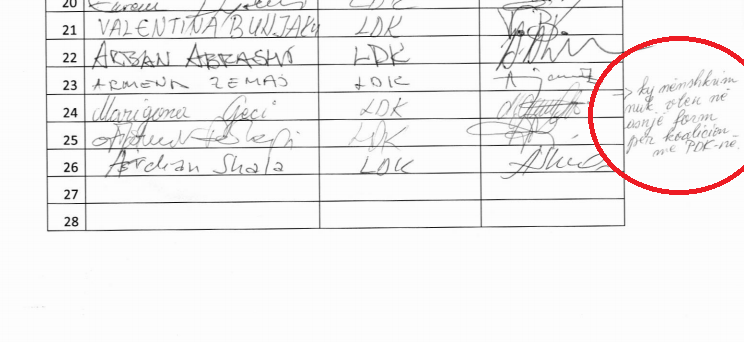 20 LDK
21 VALENTINA BUNJAKU LDK
22 ARBAN ABRASHI LDK
23 ARMENA ZEMAJ LDK
24 Marigona Geci LDK
25 LDK
26 Ardian Shala LDK AShala
27
28
ky nënshkrim
nuk vlen në
asnjë form
për koalicion
me PDK-në.